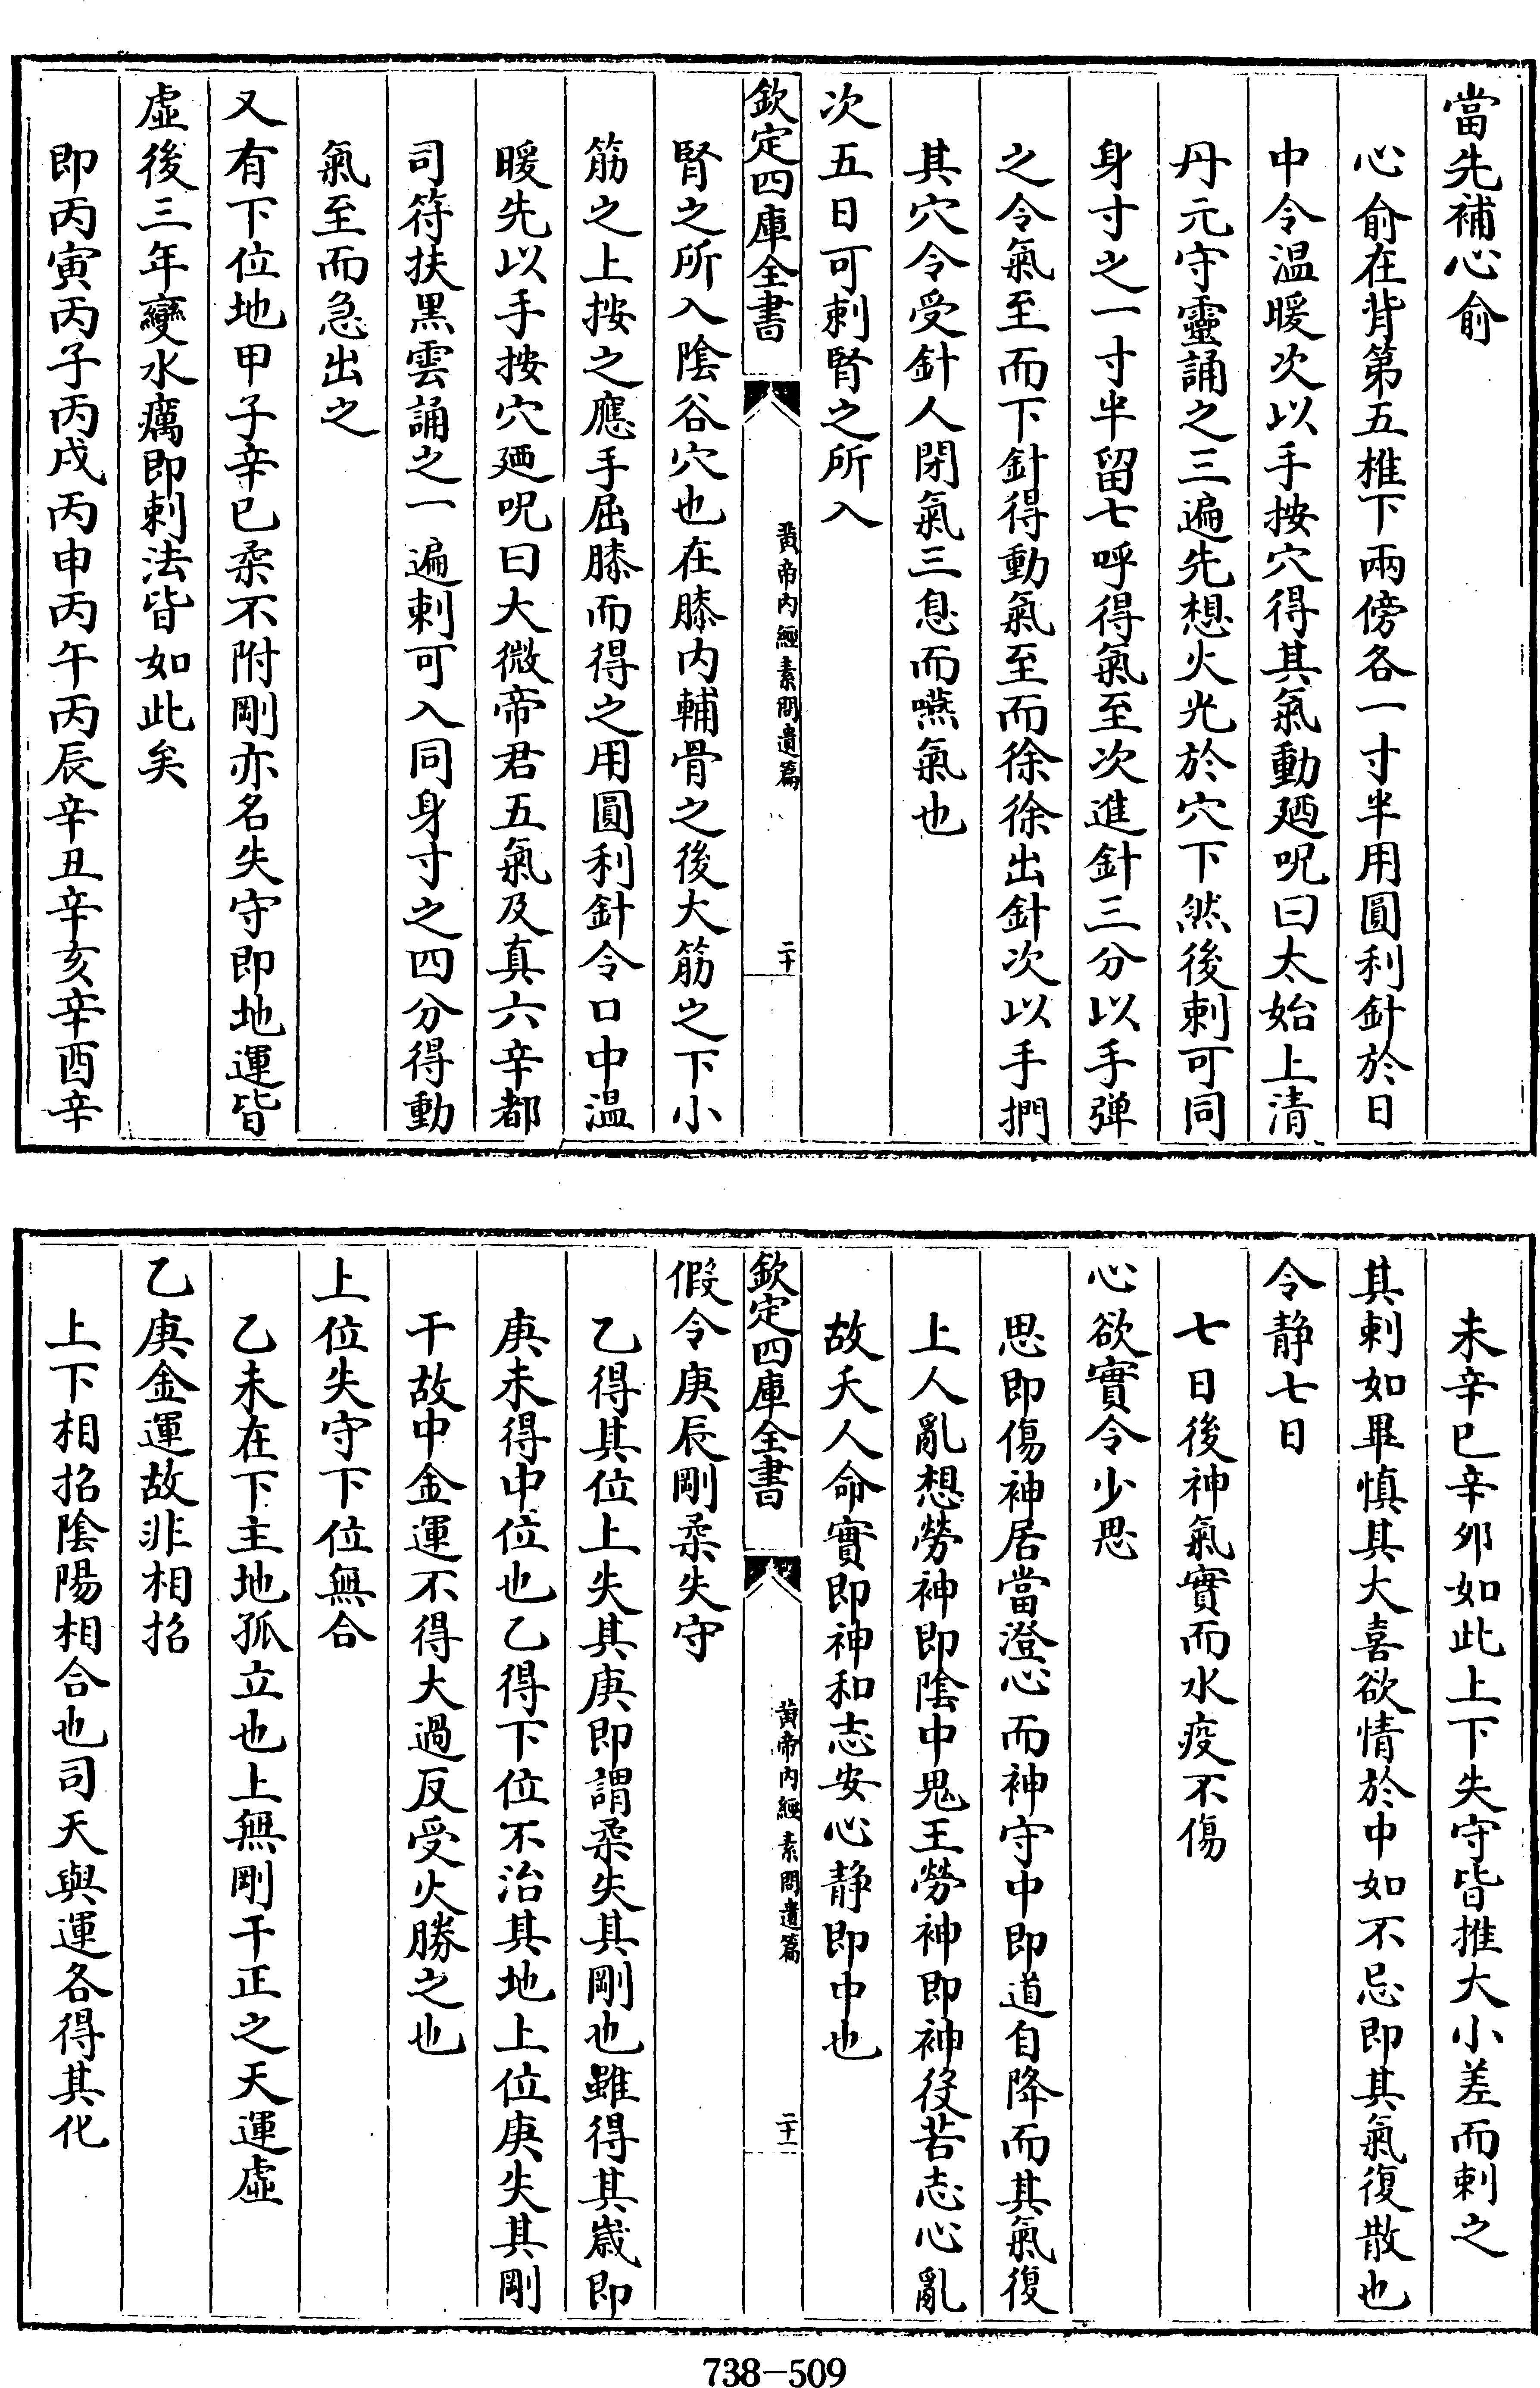 當先補心俞
心俞在背第五椎下兩傍各一寸半用圓利針於日
中令温暖次以手按穴得其氣動廼呪曰太始上清
丹元守靈誦之三遍先想火光於穴下然後刺可同
身寸之一寸半留七呼得氣至次進針三分以手弹
之令氣至而下針得動氣至而徐徐出針次以手捫
其穴令受針人閉氣三息而嚥氣也
次五日可刺腎之所入
欽定四庫全書
黄帝内經素問遺篇
二十
腎之所入陰谷穴也在膝内輔骨之後大筋之下小
筋之上按之應手屈膝而得之用圓利針令口中温
暖先以手按穴廼呪曰大微帝君五氣及真六辛都
司符扶黑雲誦之一遍刺可入同身寸之四分得動
氣至而急出之
又有下位地甲子辛巳柔不附剛亦名失守即地運皆
虛後三年變水癘即刺法皆如此矣
即丙寅丙子丙戌丙申丙午丙辰辛丑辛亥辛酉辛
未辛巳辛夘如此上下失守皆推大小差而刺之
其刺如畢慎其大喜欲情於中如不忌即其氣復散也
令静七日
七日後神氣實而水疫不傷
心欲實令少思
思即傷神居當澄心而神守中即道自降而其氣復
上人亂想勞神即陰中鬼王勞神即神役苦志心亂
故夭人命實即神和志安心静即中也
欽定四庫全書
黄帝内經素問遺篇
二十一
假令庚辰剛柔失守
乙得其位上失其庚即謂柔失其剛也雖得其嵗即
庚未得中位也乙得下位不治其地上位庚失其剛
干故中金運不得大過反受火勝之也
上位失守下位無合
乙未在下主地孤立也上無剛干正之天運虛
乙庚金運故非相招
上下相招陰陽相合也司天與運各得其化
738-509